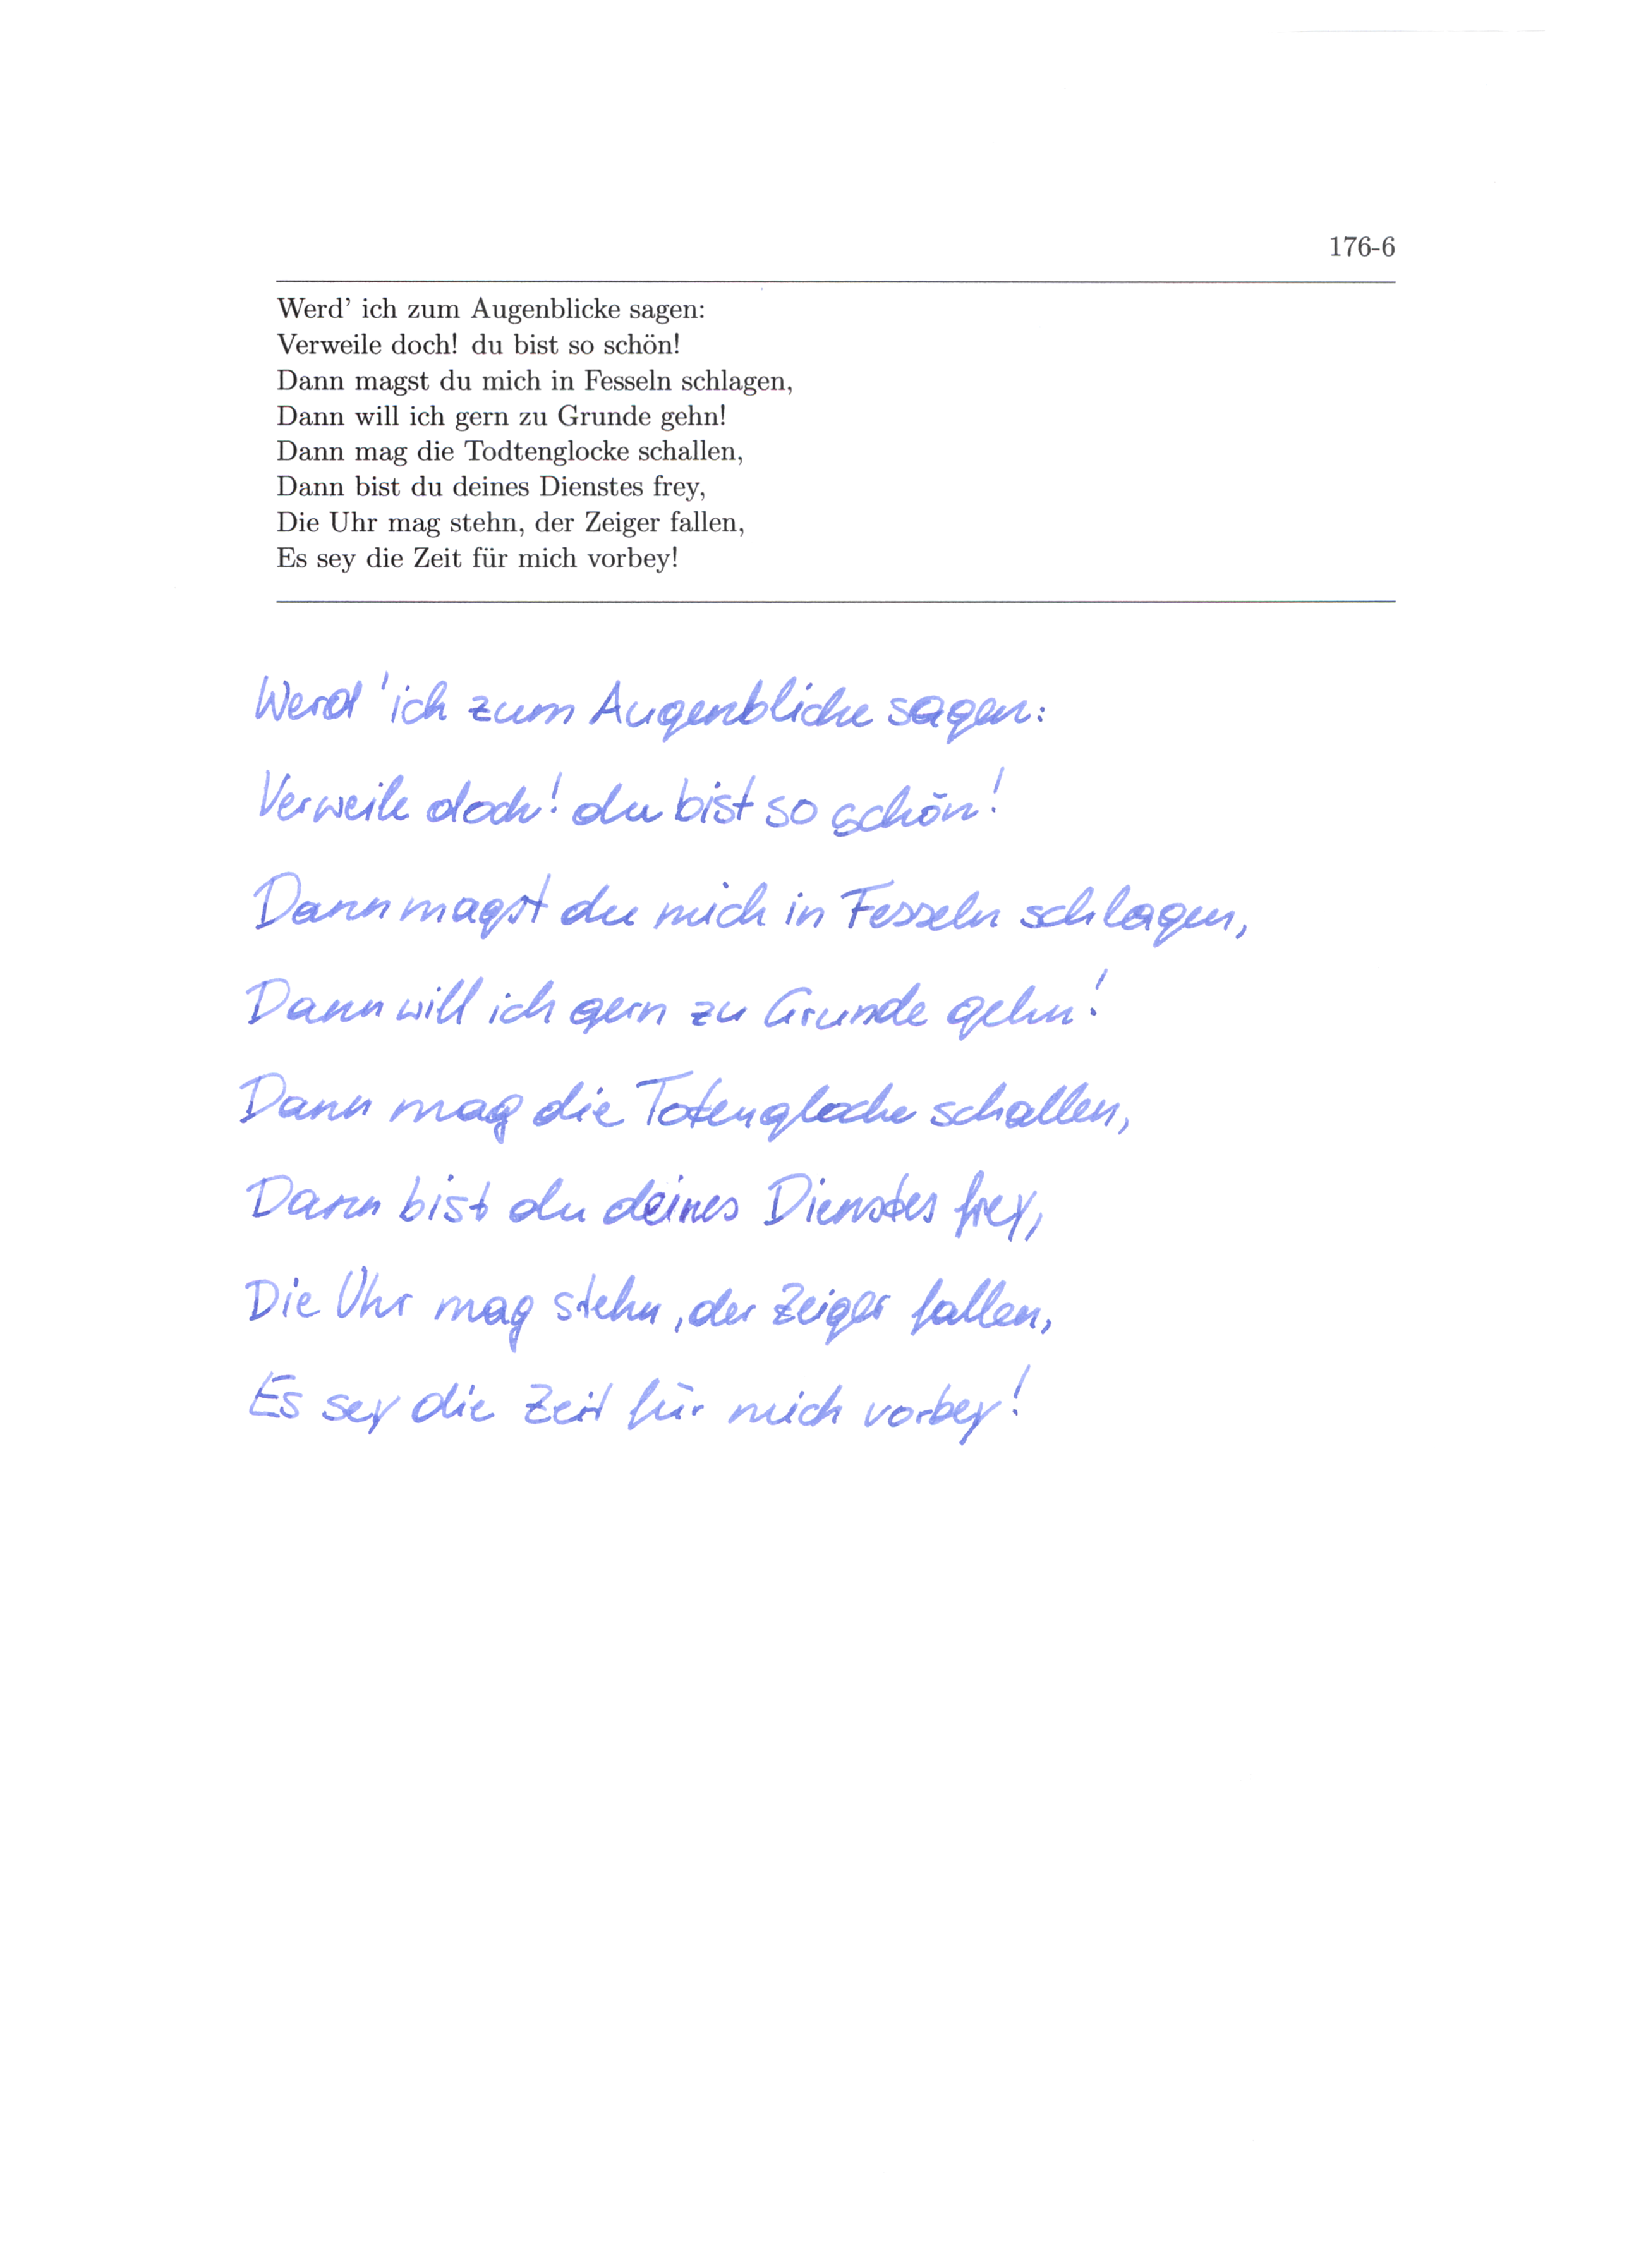 176-6
Werd’ ich zum Augenblicke sagen:
Verweile doch! du bist so schön!
Dann magst du mich in Fesseln schlagen,
Dann will ich gern zu Grunde gehn!
Dann mag die Todtenglocke schallen,
Dann bist du deines Dienstes frey,
Die Uhr mag stehn, der Zeiger fallen,
Es sey die Zeit für mich vorbey!
Werd 'ich zum Augenblicke sagen:
Verweile doch! du bist so schön!
Dann magst du mich in Fesseln schlagen,
Dann will ich gern zu Grunde gehn!
Dann mag die Totenglocke schallen,
Dann bist du deines Dienstes frey,
Die Uhr mag stehn, der Zeiger fallen,
Es sey die Zeit für mich vorbey!